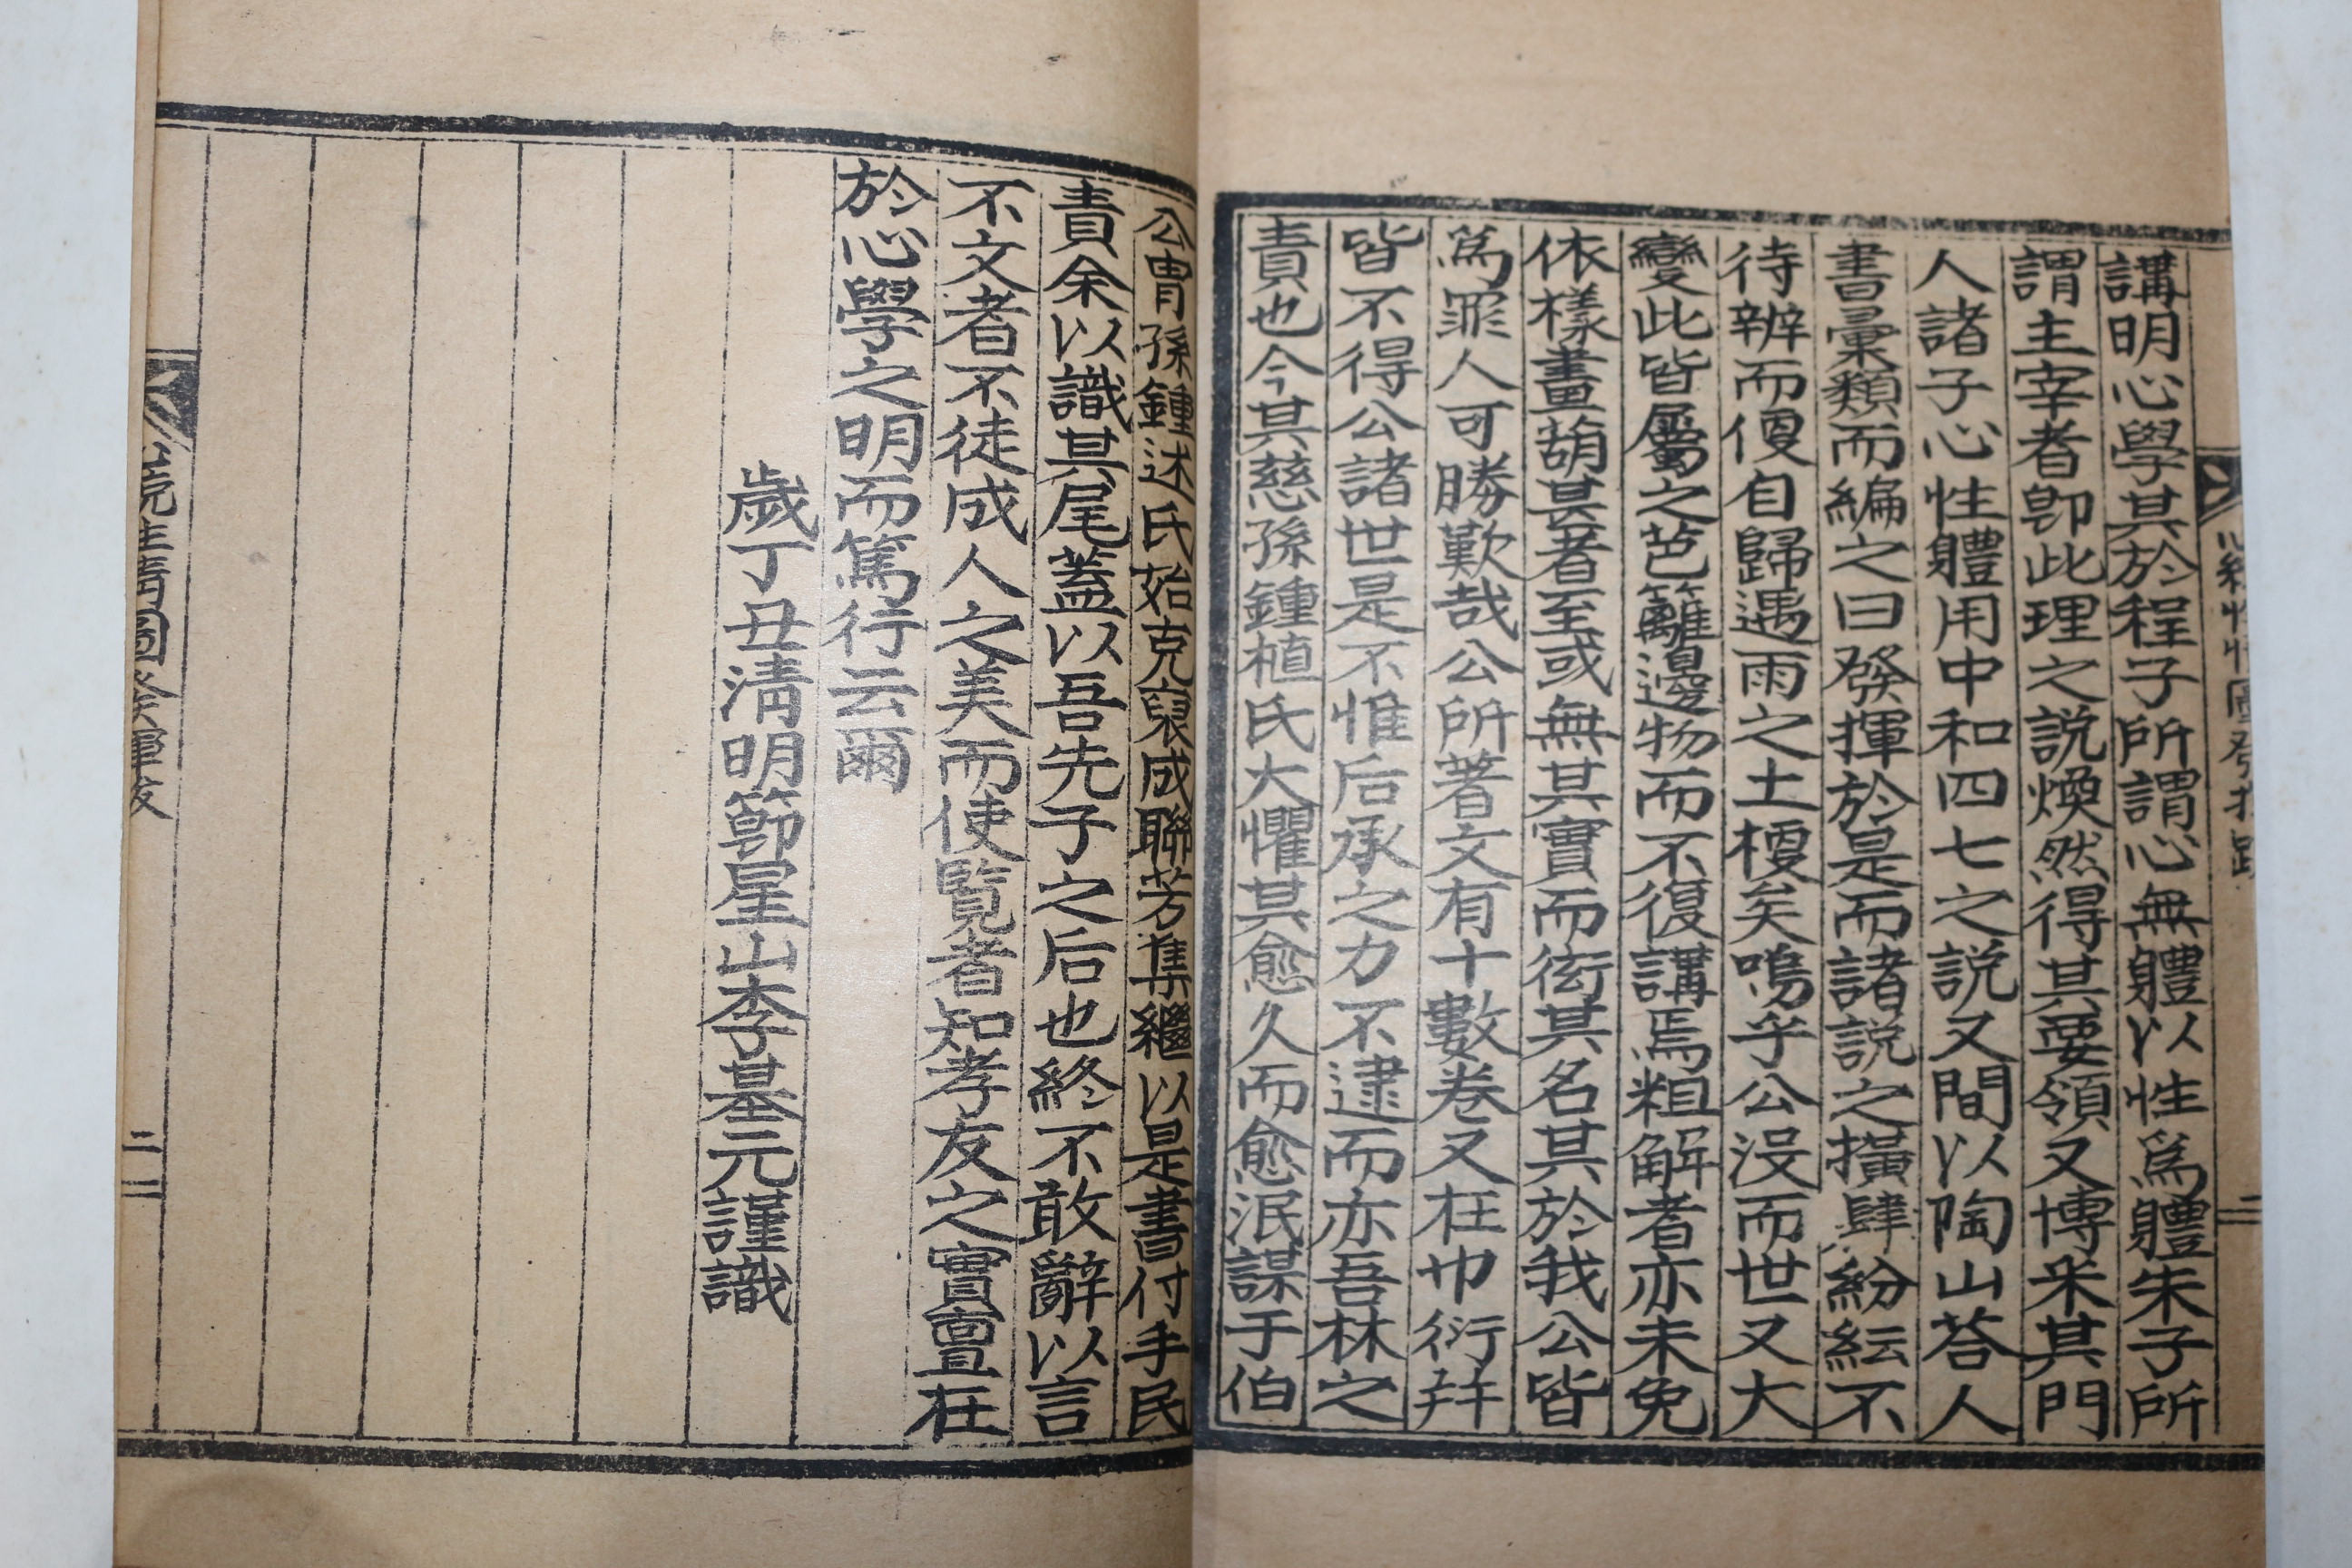 講明心學其於程子所謂心無軆以性爲軆朱子所
謂主宰者卽此理之說煥然得其要領又博采其門
人諸子心性軆用中和四七之說又間以陶山荅人
書彙類而編之曰發揮於是而諸說之橫肆紛紜不
待辨而便自歸遇雨之土梗矣嗚乎公沒而世又大
變此皆屬之笆籬邊物而不復講焉粗解者亦未免
依樣畫葫其者至或無其實而衒其名其於我公皆
爲罪人可勝歎哉公所著文有十數卷又在巾衍幷
皆不得公諸世是不惟后承之力不逮而亦吾林之
責也今其慈孫鍾植氏大懼其愈久而愈泯謀于伯
公冑孫鍾述氏始克裒成聯芳集繼以是書付手民
責余以識其尾蓋以吾先子之后也終不敢辭以言
不文者不徒成人之美而使覽者知孝友之實亶在
於心學之明而篤行云爾
歲丁丑淸明節星山李基元謹識
二